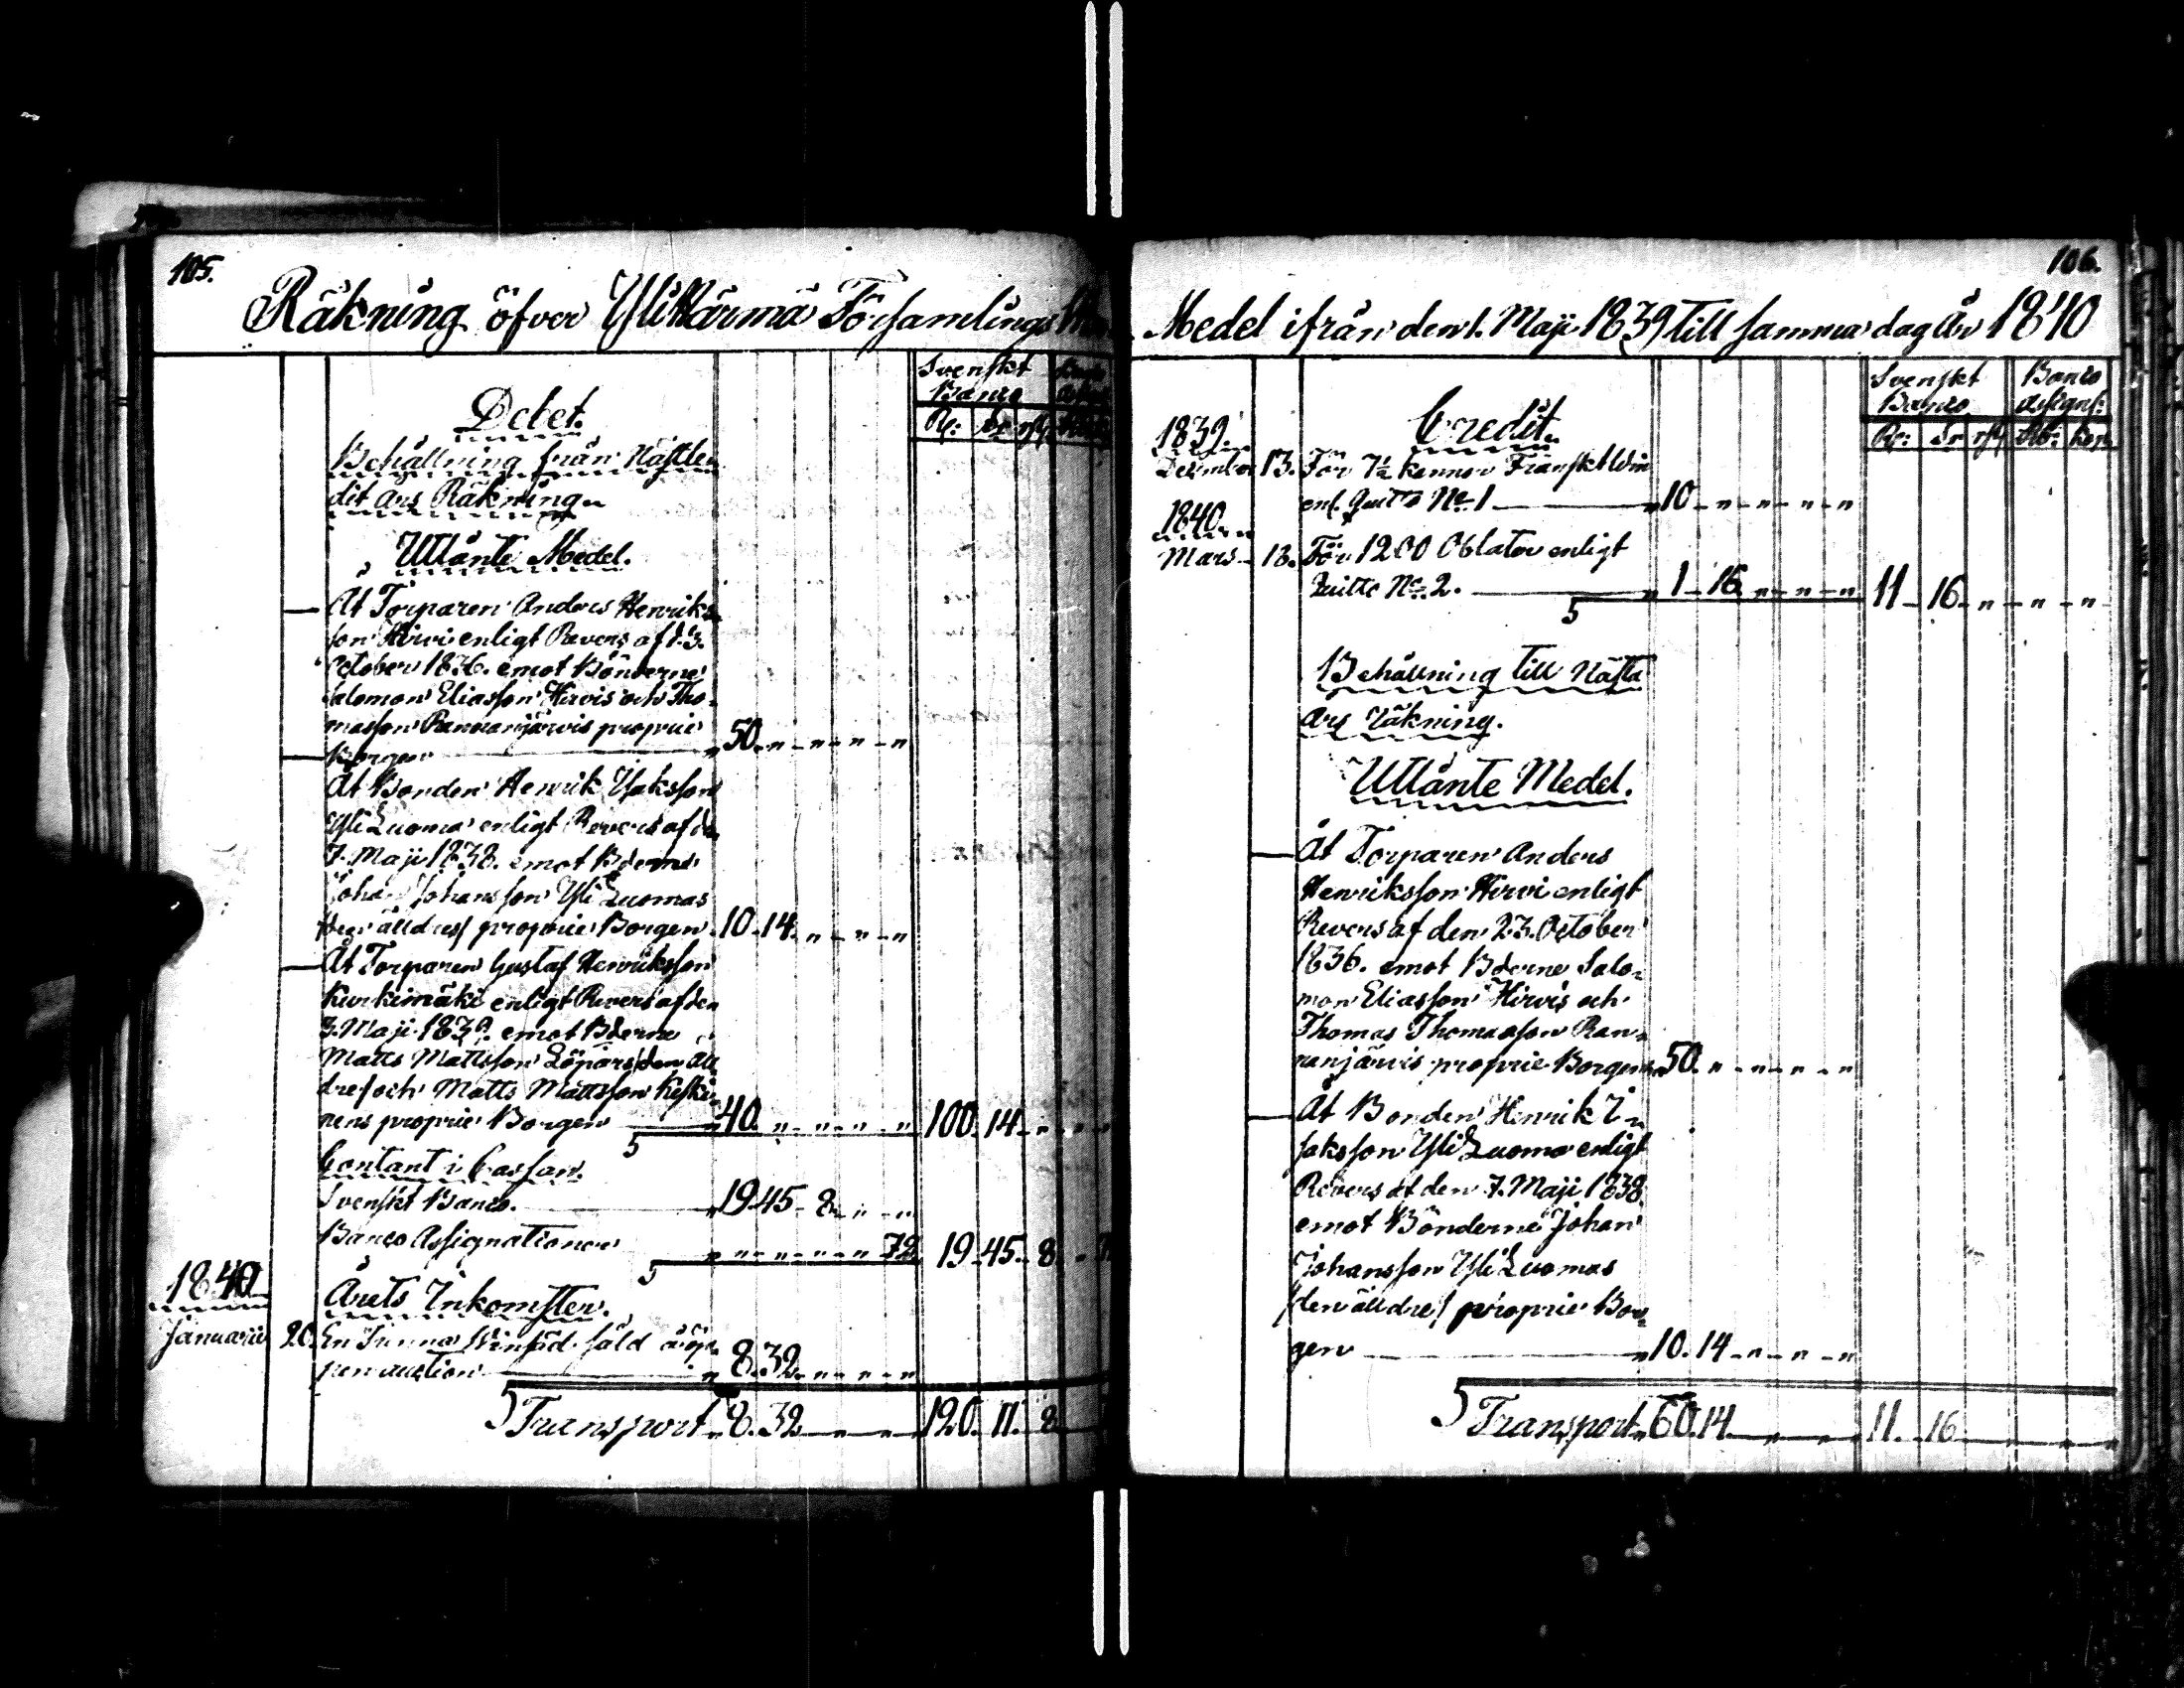 105.
Räkning öfver Ylikärmä Församlings
Svenskt
Banco
Rf: Sr. rst.
Debet.
Behållning från Nästle
dit års Räkning
Utlånte Medel.
Åt Torparen Anders Henriks
son Hirvi enligt Revers af d. 23.
October 1836. emot Bönderne
Salomon Eliasson Hirvis och Tho
masson Rannanjärvis proprie
Borgen 50. " " " "
Åt Bonden Henrik Isaksson
Yli Luoma enligt Revers af den
7. Maji 1838. emot Bderne
Johan Johansson Yli Luomas
den älldres proprie Borgen 10. 14. " " "
Åt Torparen Gustaf Henriksson
Kurkimäki enligt Revers af den
3. Maji 1839. emot Bderne
Matts Mattsson Löpärs den äll
dres och Matts Mattsson Keski
nens proprie Borgen 40. " " " " 100. 14. "
Contant i Cassan.
Svenskt Banco. 19 45. 8. " "
Banco Assignationer " " " " 72 19. 45. 8
1840
Årets Inkomster.
Januarii 20. En Tunna såld å öp
pen auction 8. 32. " " "
Transport 8. 32 " " 120. 11. 8
106.
Medel ifrån den 1. Maji 1839 till samma dag år 1840
Svenskt Banco
Banco assignat:
Rf: Sr. rst. Rb: kop.
1839. Credit.
December 13. För 7½ kannor Franskt Win
enl. Quitto No 1 10. " " " "
1840.
Mars 13. För 1200 Oblater enligt
Quitto No 2. 1. 16. " " " 11. 16. " " "
Behållning till nästa
års räkning.
Utlånte Medel.
Åt Torparen Anders
Henriksson Hirvi enligt
Revers af den 23. October
1836. emot Bderne Salo
mon Eliasson Hirvis och
Thomas Thomasson Ran
nanjärvis proprie Borgen 50. " " " "
Åt Bonden Henrik I
saksson Yli Luoma enligt
Revers af den 7. Maji 1838
emot Bönderne Johan
Johansson Yli Luomas
/den älldre/ proprie Bor
gen 10. 14. " " "
Transport 60. 14. " " 11. 16